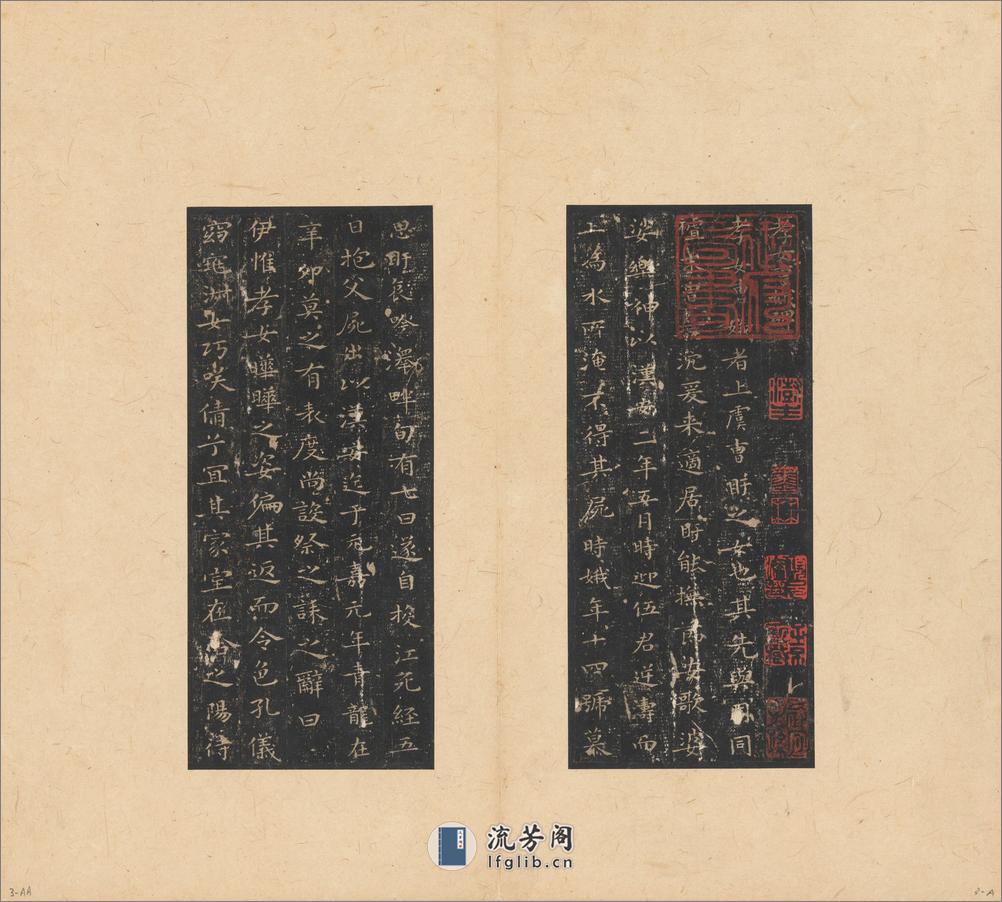 孝女曹娥碑
孝女曹娥者上虞曹盱之女也其先與周同
祖末冑荒沉爰来適居盱能撫節安歌婆
娑樂神以漢安二年五月時迎伍君逆濤而
上為水所淹不得其屍時娥年十四號慕
思盱哀吟澤畔旬有七日遂自投江死經五
日抱父屍出以漢安迄于元嘉元年青龍在
辛卯莫之有表度尚設祭之誄之辭曰
伊惟孝女曄曄之姿偏其返而令色孔儀
窈窕淑女巧咲倩兮宜其家室在洽之陽待
流芳阁
lfglib.cn
3-AA
3-A